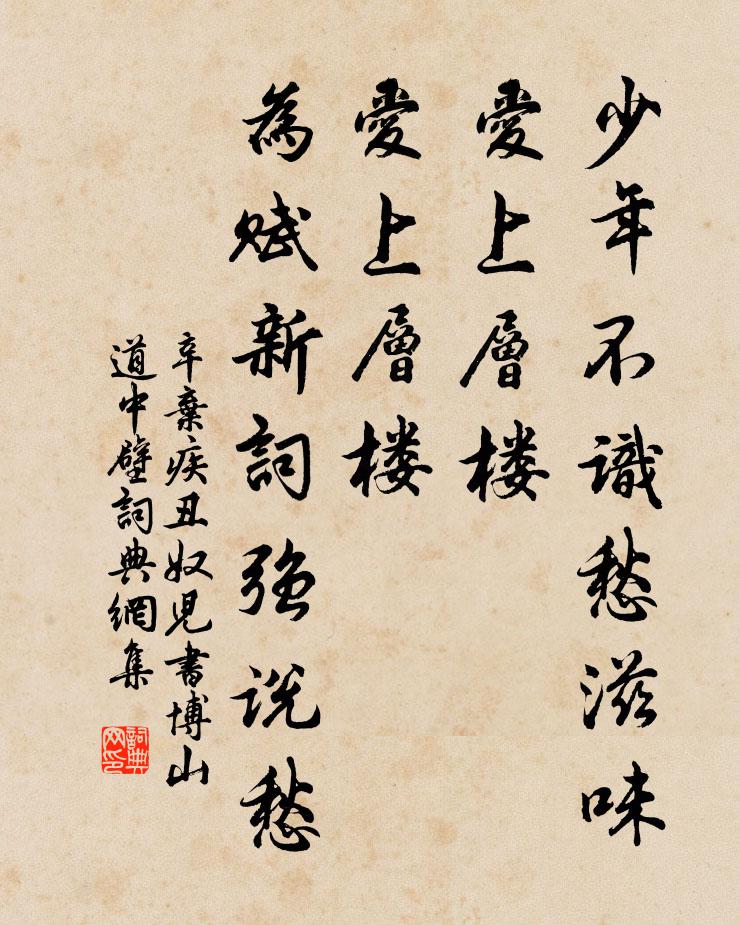 少年不識愁滋味
愛上層楼
愛上層楼
為賦新詞強説愁
辛棄疾丑奴兒書博山
道中壁詞典網集
詞典
网印